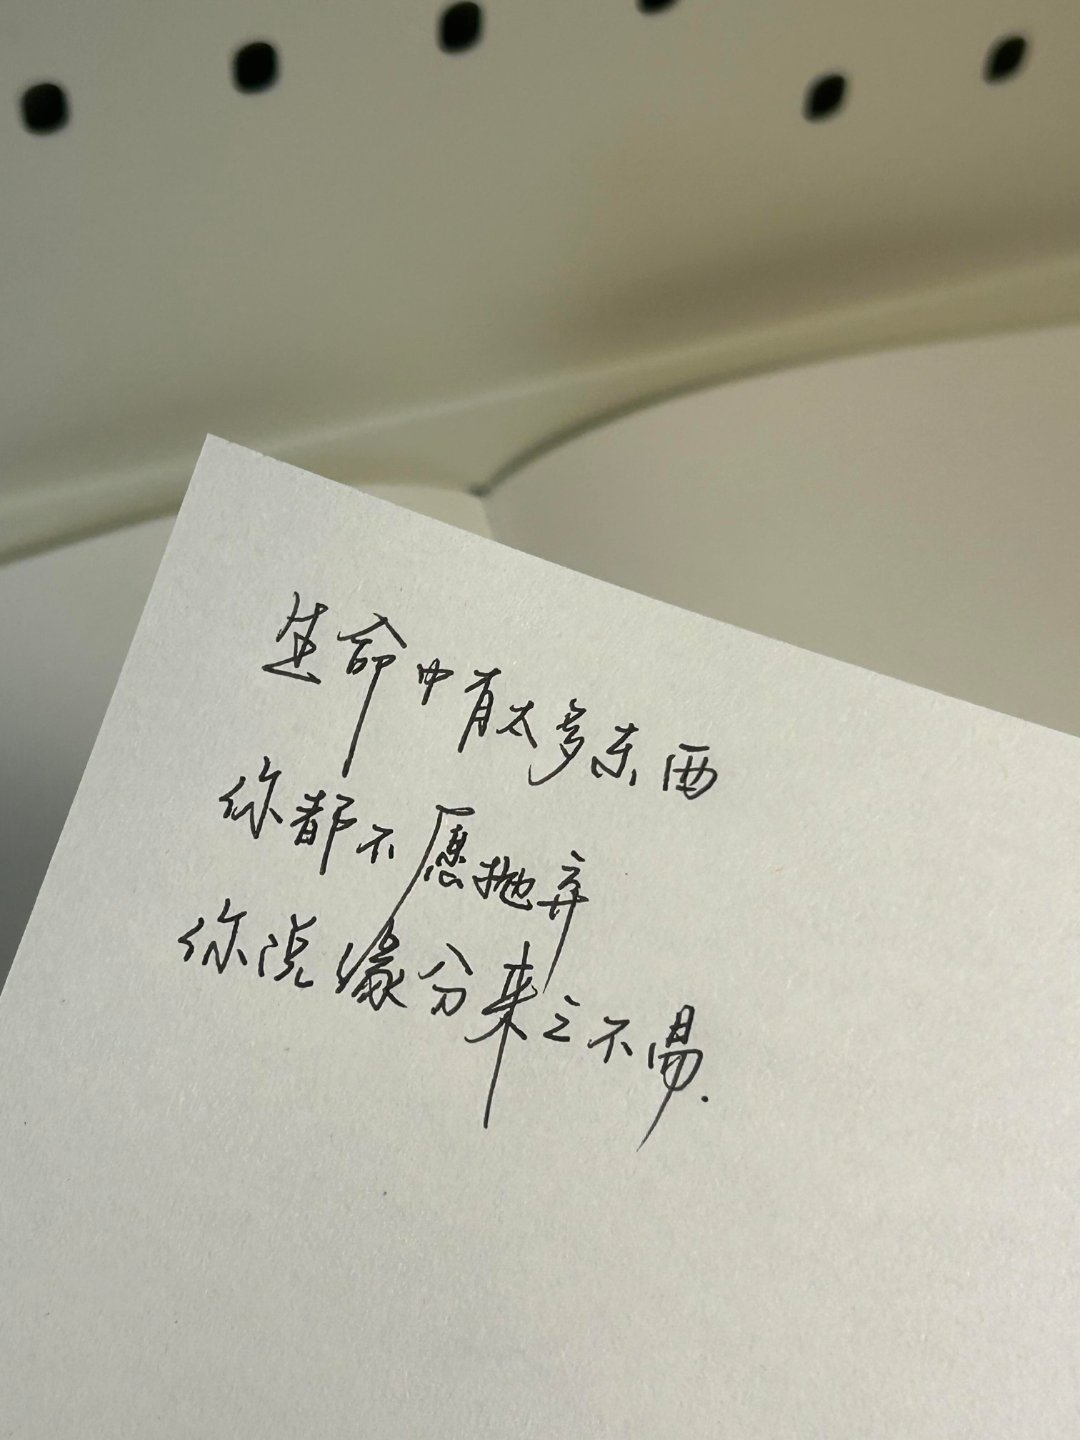 生命中有太多东西
你都不愿抛弃
你说缘分来之不易.